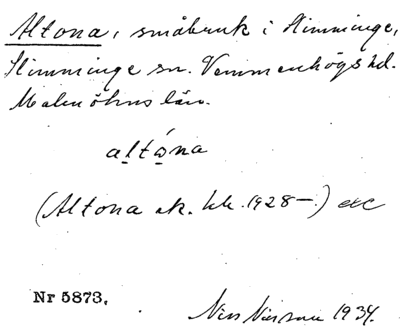 Altona, småbruk i Slimminge,
Slimminge sn. Vemmenhögs hd.
Malmöhus län.
altóna
(Altona ek. kk. 1928—.) etc
Nr 5873.
1934.